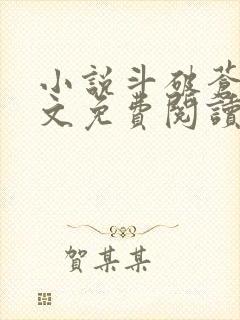 小說斗破蒼
文免費閱讀
賀某某